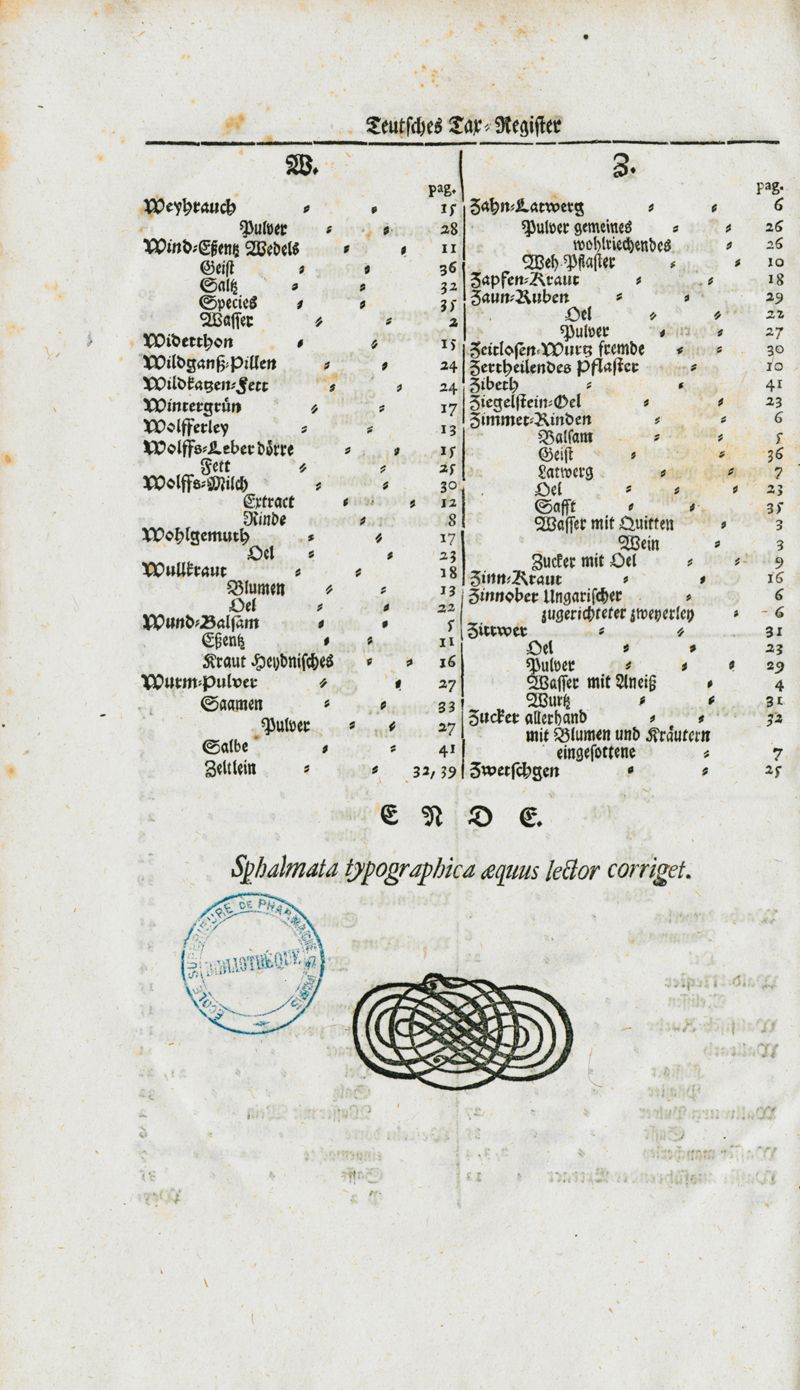 Teutsches Tax-Register
W.
pag.
Weyhrauch 15
Pulver 28
Wind-Eßentz Wedels 11
Geist 36
Saltz 32
Species 35
Wasser 2
Widerthon 15
Wildganß-Pillen 24
Wildkatzen-Fett 24
Wintergrün 17
Wolfferley 13
Wolffs-Leber dörre 15
Fett 25
Wolffs-Milch 30
Extract 12
Rinde 8
Wohlgemuth 17
Oel 23
Wullkraut 18
Blumen 13
Oel 22
Wund-Balsam 5
Eßentz 11
Kraut Heydnisches 16
Wurm-Pulver 27
Saamen 33
Pulver 27
Salbe 41
Zeltlein 32, 39
Z.
pag.
Zahn-Latwerg 6
Pulver gemeines 26
wohlriechendes 26
Weh-Pflaster 10
Zapfen-Kraut 18
Zaun-Ruben 29
Oel 22
Pulver 27
Zeitlosen-Wurtz fremde 30
Zertheilendes Pflaster 10
Zibeth 41
Ziegelstein-Oel 23
Zimmet-Rinden 6
Balsam 5
Geist 36
Latwerg 7
Oel 23
Safft 35
Wasser mit Quitten 3
Wein 3
Zucker mit Oel 9
Zinn-Kraut 16
Zinnober Ungarischer 6
zugerichteter zweyerley 6
Zittwer 31
Oel 23
Pulver 29
Wasser mit Aneiß 4
Wurtz 31
Zucker allerhand 32
mit Blumen und Kräutern
eingesottene 7
Zwetschgen 25
E N D E.
Sphalmata typographica æquus lector corriget.
ECOLE SUPERIEURE DE PHARMACIE DE PARIS
BIBLIOTHÈQUE